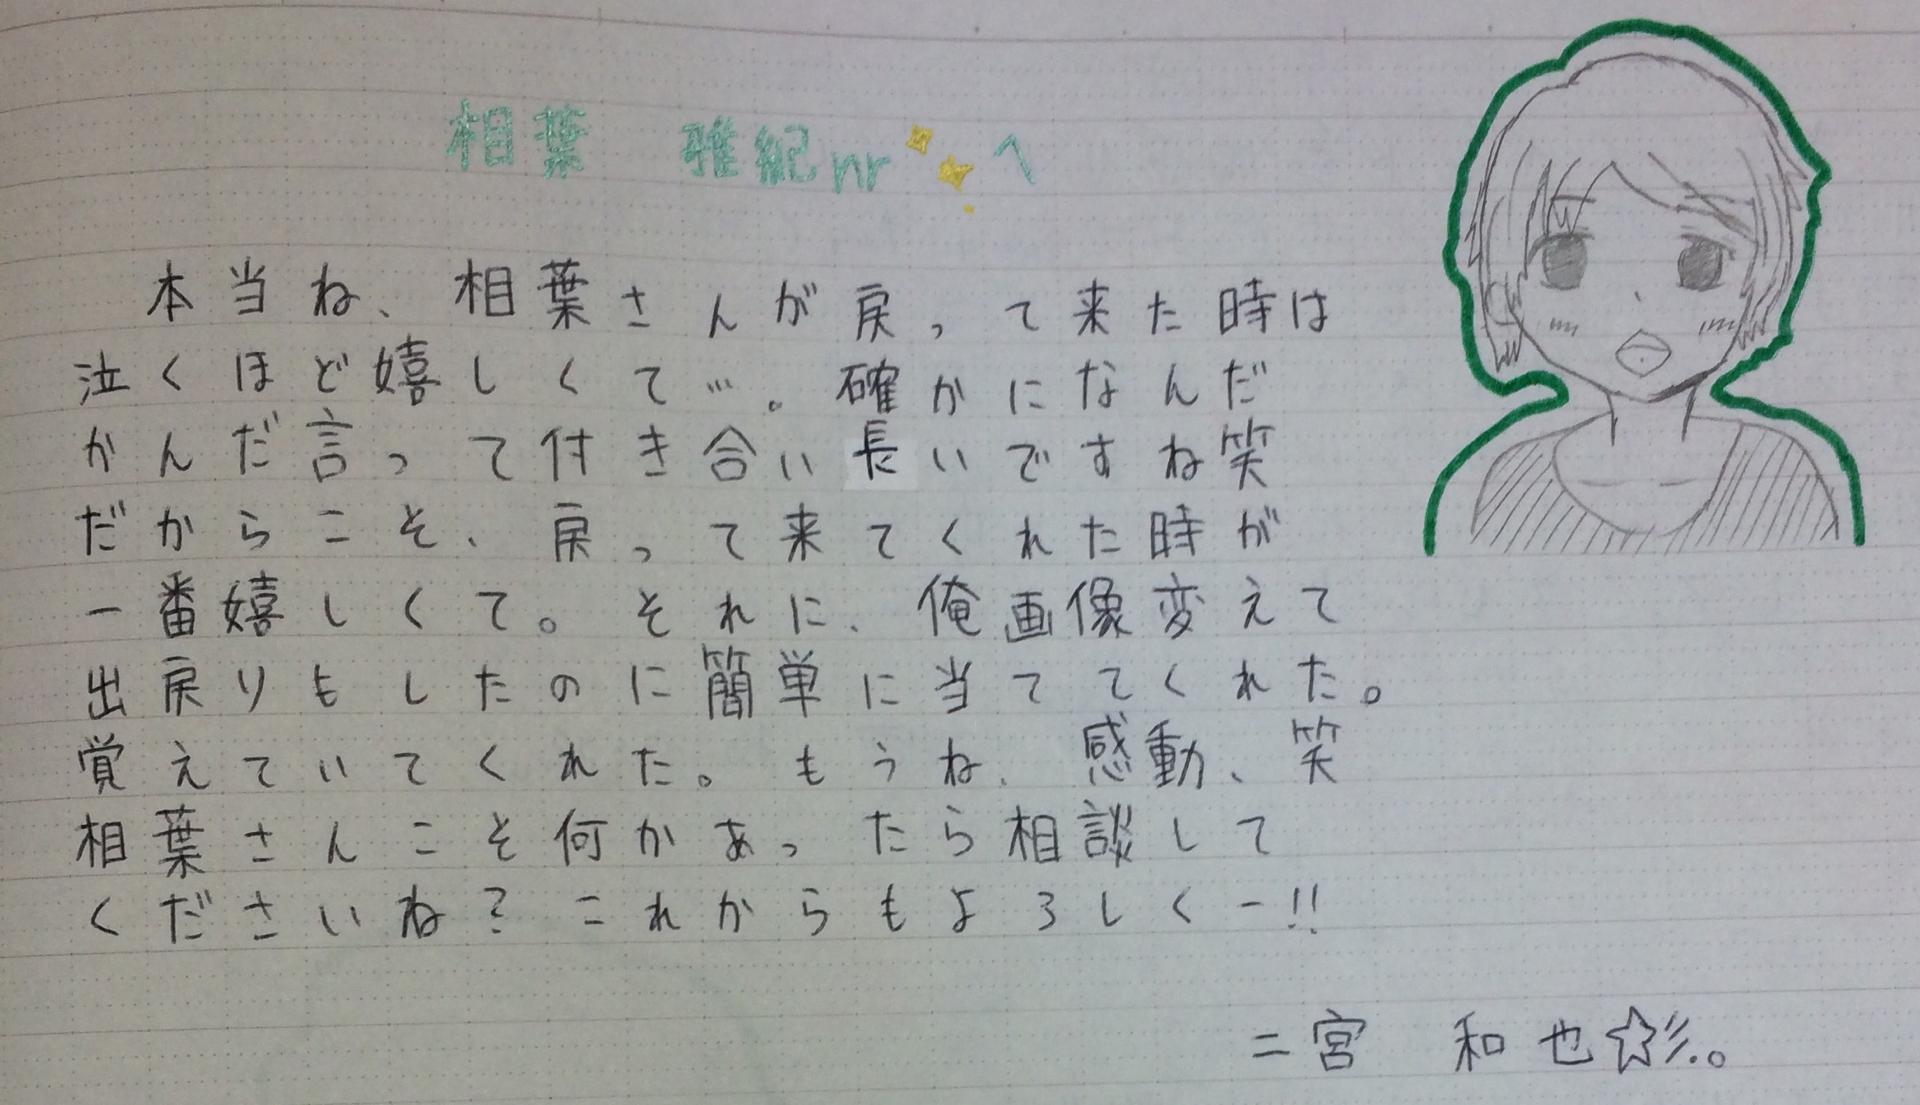 相葉 雅紀nrへ
本当ね、相葉さんが戻って来た時は
泣くほど嬉しくて…。確かになんだ
かんだ言って付き合い長いですね笑
だからこそ、戻って来てくれた時が
一番嬉しくて。それに、俺画像変えて
出戻りもしたのに簡単に当ててくれた。
覚えていてくれた。もうね、感動、笑
相葉さんこそ何かあったら相談して
くださいね?これからもよろしくー!!
二宮 和也☆彡.。